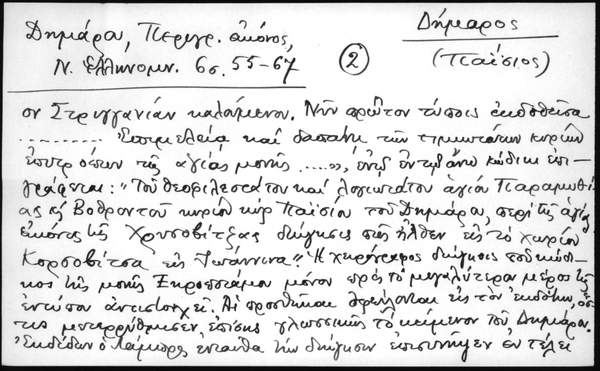 Δήμαρος
(Παΐσιος)
Δημάρα, Περιγρ. εικόνος,
Ν. Ελληνομν. 6 σ. 55-67
②
ον Στρυγγανίαν καλούμενον. Νῦν πρῶτον τύποις ἐκδοθεῖσα
......... Ἐπιμελείᾳ καὶ δαπάνῃ τῶν τιμιωτάτων κυρίων
ἐπιτρόπων τῆς ἁγίας μονῆς .....», ἐν τῷ ἄνω κώδικι ἐπι-
γράφεται: "Τοῦ θεοφιλεστάτου καὶ λογιωτάτου ἁγίου Παραμυθί-
ας καὶ Βοθροντοῦ κυρίου κὺρ Παϊσίου τοῦ Δημάρα, περὶ τῆς ἁγίας
εἰκόνος τῆς Χρυσοβίτζας διήγησις πῶς ἦλθεν εἰς τὸ χωρίον
Κορσοβίτσα εἰς Ἰωάννινα". Ἡ χειρόγραφος διήγησις τοῦ κώδι-
κος τῆς μονῆς Ξηροποτάμου μόνον πρὸς τὸ μεγαλύτερον μέρος τῆς
ἐντύπου ἀντιστοιχεῖ. Αἱ προσθῆκαι ὀφείλονται εἰς τὸν ἐκδότην, ὅσ-
τις μετερρύθμισεν ἐπίσης γλωσσικῶς τὸ κείμενον τοῦ Δημάρα.
Ἐκδίδων ὁ Λάμπρος ἐνταῦθα τὴν διήγησιν ἐπισυνῆψεν ἐν τέλει